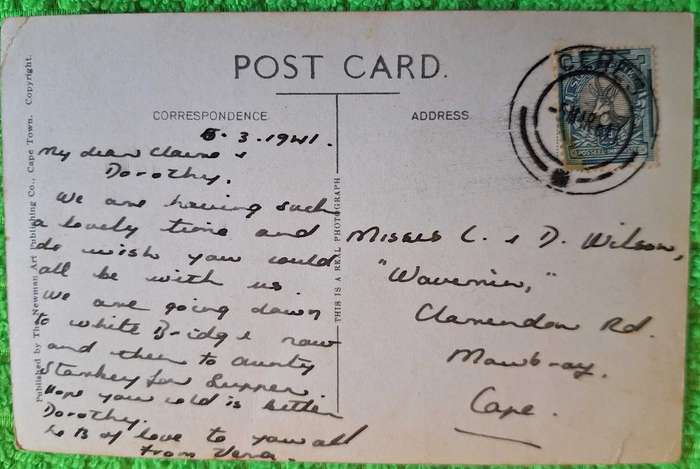 POST CARD.
CORRESPONDENCE
ADDRESS
5.3.1941.
My dear Claire &
Dorothy.
We are having such
a lovely time and
do wish you could
all be with us.
We are going down
to White Bridge now
and then to Aunty
for Supper.
Hope you cold is better
Dorothy.
Lots of love to you all
from Vera.
Misses C. & D. Wilson,
Clarendon Rd.
Mowbray.
Cape.
CERES
THIS IS A REAL PHOTOGRAPH
Published by The Newman Art Publishing Co., Cape Town. Copyright.